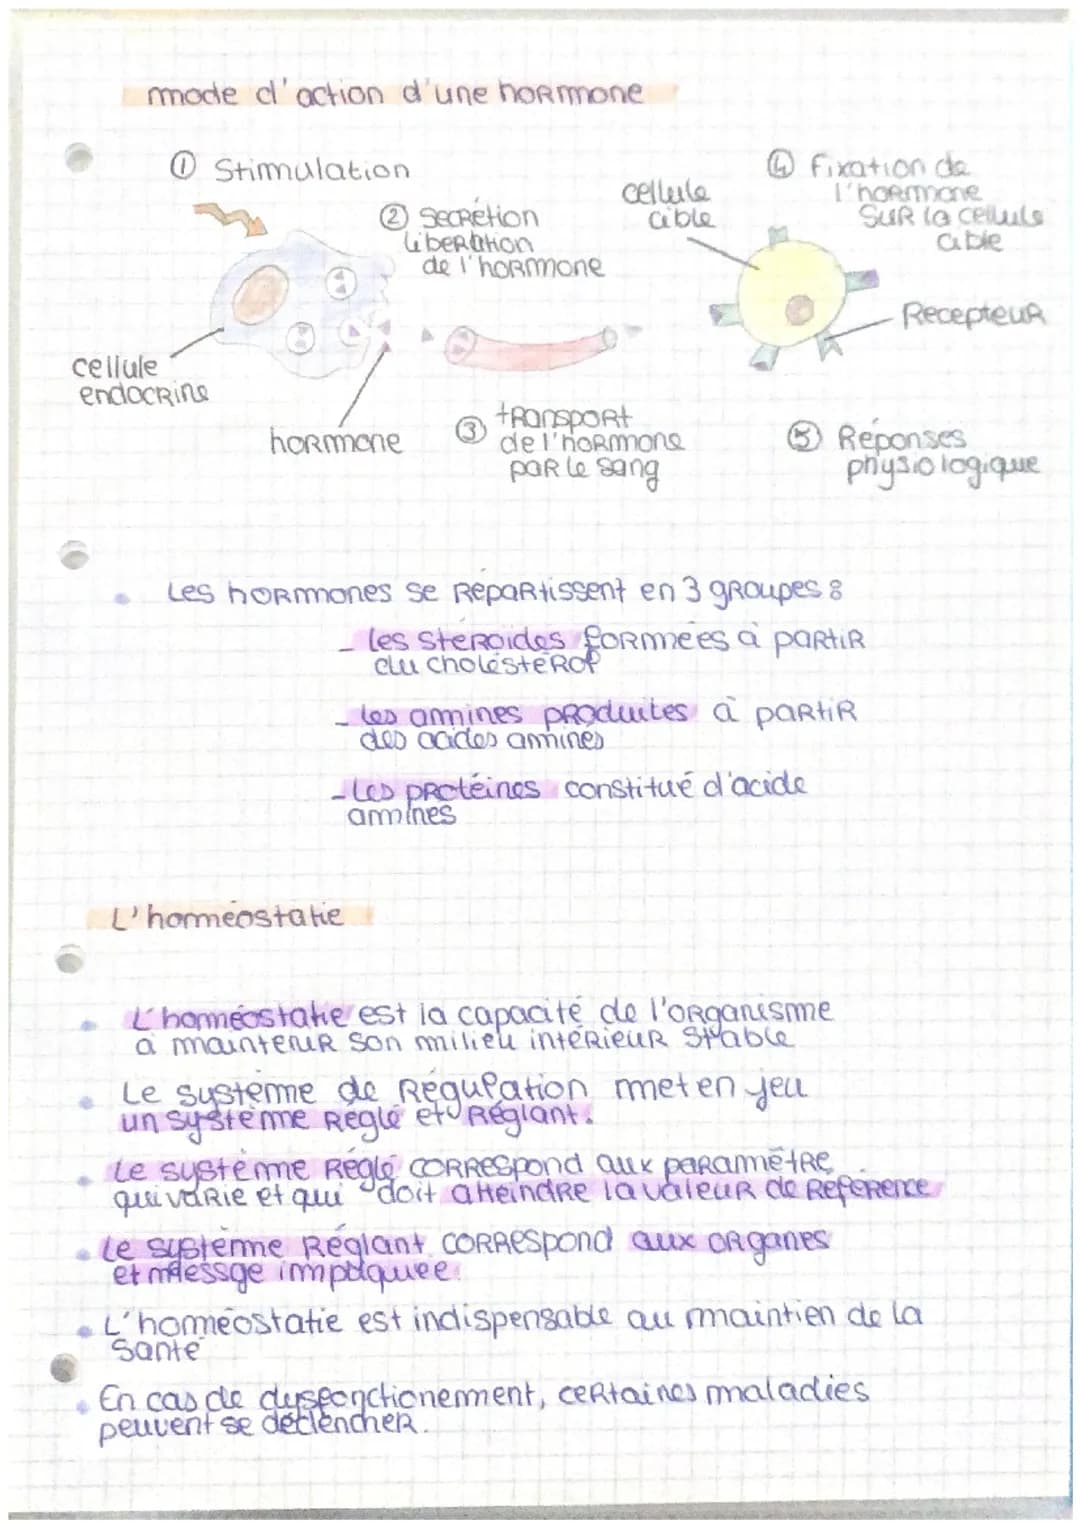 mode d'action d'une hormone
① Stimulation
② Secrétion
liberation
de l'hormone
cellule
cible
④ Fixation de
l'hormone
sur la cellule
cible
Recepteur
cellule
endocrine
hormone
③ transport
de l'hormone
par le sang
⑤ Réponses
physiologique
Les hormones se répartissent en 3 groupes :
- les steroides formées à partir
du cholésterol
- les amines produites à partir
des acides aminés
- Les protéines constitué d'acide
aminés
L'homéostatie
L'homéostatie est la capacité de l'organisme
à maintenir son milieu intérieur stable
Le système de régulation met en jeu
un système réglé et réglant.
Le système réglé correspond aux paramètre
qui varie et qui doit atteindre la valeur de reference
Le système réglant correspond aux organes
et messge impliquée.
L'homéostatie est indispensable au maintien de la
santé
En cas de dysfonctionement, certaines maladies
peuvent se déclencher.